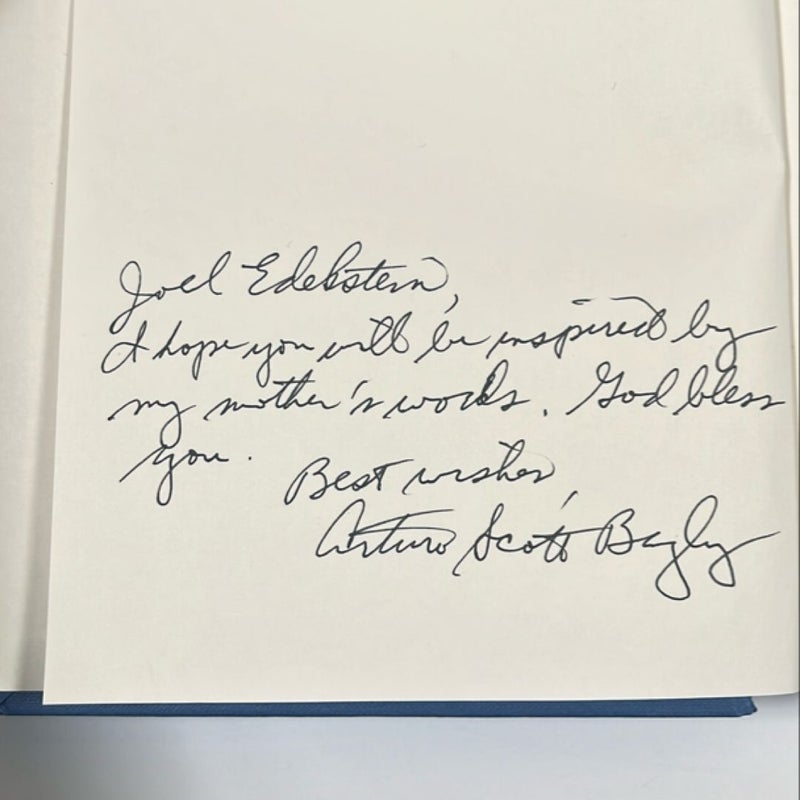 Joel Edelstein,
I hope you will be inspired by
my mother's words. God bless
you.
Best wishes,
Arturo Scott Bagly